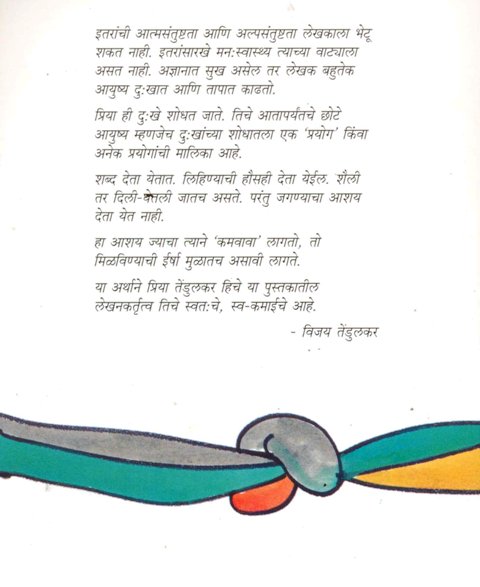 इतरांची आत्मसंतुष्टता आणि अल्पसंतुष्टता लेखकाला भेटू
शकत नाही. इतरांसारखे मन:स्वास्थ्य त्याच्या वाट्याला
असत नाही. अज्ञानात सुख असेल तर लेखक बहुतेक
आयुष्य दु:खात आणि तापात काढतो.
प्रिया ही दु:खे शोधत जाते. तिचे आतापर्यंतचे छोटे
आयुष्य म्हणजेच दु:खांच्या शोधातला एक 'प्रयोग' किंवा
अनेक प्रयोगांची मालिका आहे.
शब्द देता येतात. लिहिण्याची हौसही देता येईल. शैली
तर दिली-घेतली जातच असते. परंतु जगण्याचा आशय
देता येत नाही.
हा आशय ज्याचा त्याने 'कमवावा' लागतो, तो
मिळविण्याची ईर्षा मुळातच असावी लागते.
या अर्थाने प्रिया तेंडुलकर हिचे या पुस्तकातील
लेखनकर्तृत्व तिचे स्वत:चे, स्व-कमाईचे आहे.
- विजय तेंडुलकर